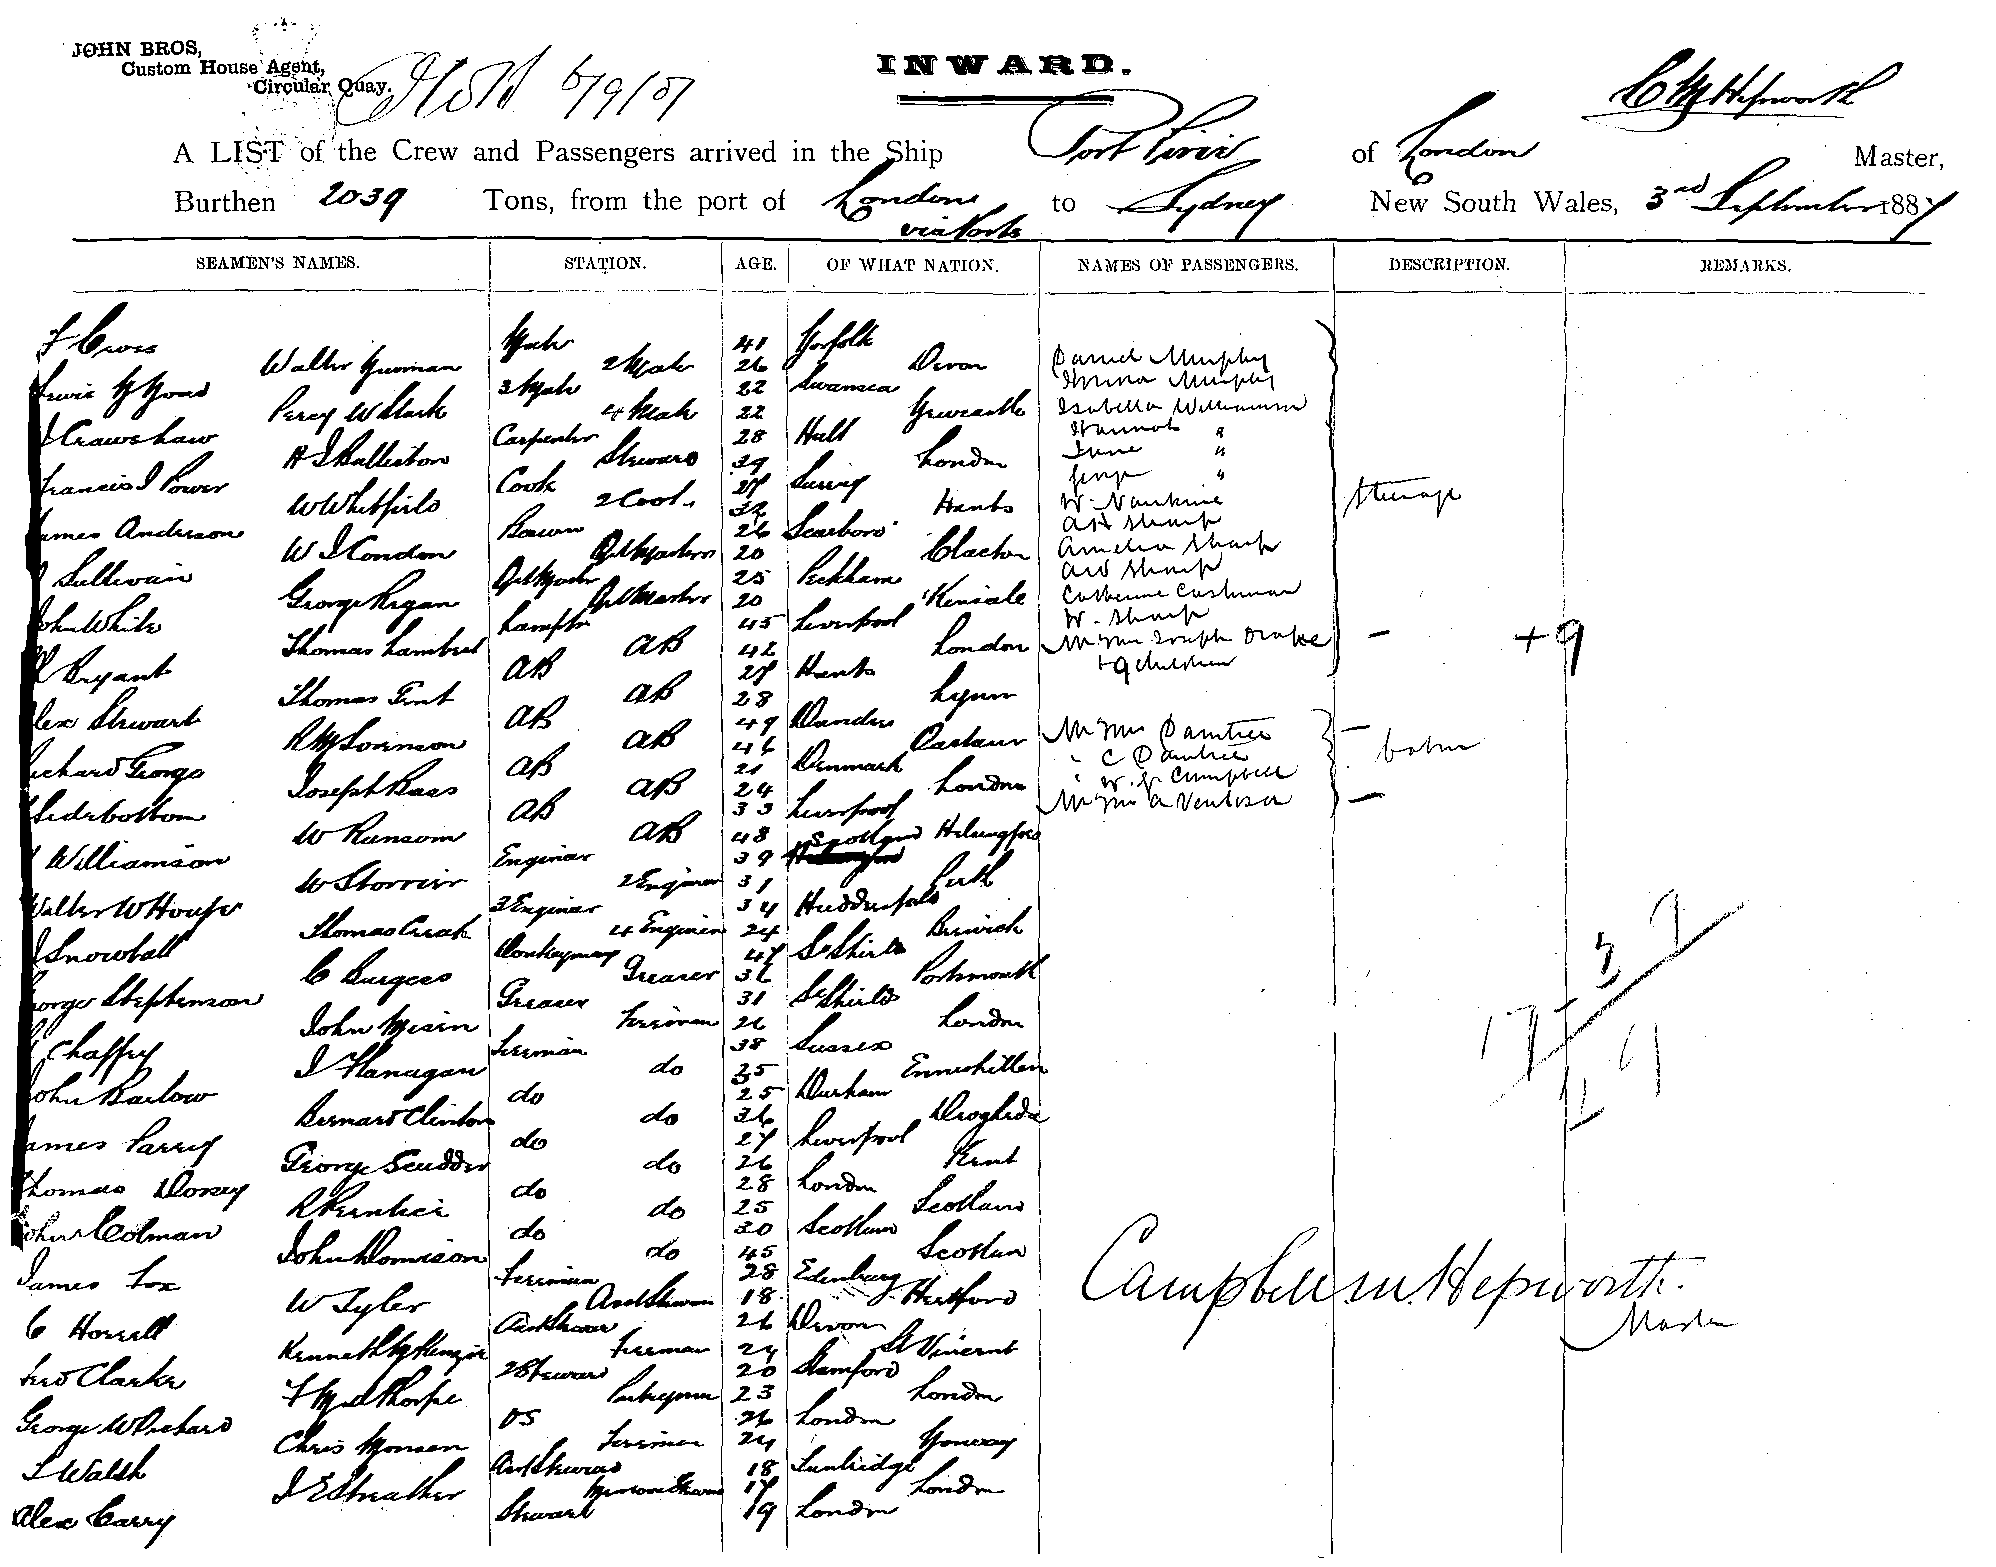 JOHN BROS,
Custom House Agent,
Circular Quay.
INWARD.
C M Hepworth
A LIST of the Crew and Passengers arrived in the Ship Port Pirie of London Master,
Burthen 2039 Tons, from the port of London via Ports to Sydney New South Wales, 3rd September 1887
SEAMEN'S NAMES. STATION. AGE. OF WHAT NATION. NAMES OF PASSENGERS. DESCRIPTION. REMARKS.
F Cross Mate 41 Norfolk
Walter 2 Mate 26 Devon Daniel Murphy
3 Mate 22 Swansea Murphy
Percy W Slark 4 Mate 22 Newcastle Isabella Williamson
J Crawshaw Carpenter 28 Hull Hannah "
Steward 39 London Jane "
Francis J Power Cook 27 Surrey George "
W Whitfield 2 Cook 32 Hants W.
James Anderson Bosun 26 Scarboro' A H Sharp Steerage
W J Condon Qrtmaster 20 Clacton Amelia Sharp
J Sullivan Qrtmaster 25 Peckham A W Sharp
George Regan Qrtmaster 20 Kinsale Catherine Cashman
John White Lamptr 45 Liverpool W. Sharp
Thomas Lambert AB 42 London Mr Mrs Joseph Drake - +9
Bryant AB 27 Hants + 9 children
Thomas Tent AB 28 Lynn
Alex Stewart AB 49 Dundee Mr Mrs Daintree
R M Sorenson AB 46 " C Daintree Cabin
Richard George AB 21 Denmark " W. G. Campbell
Joseph Bass AB 24 London Mr Mrs A Ventisa
Siderbottom AB 33 Liverpool
W Ransom AB 48 Helsingfors
Williamson Enginer 39 Scotland
W Storrier 2 Enginer 31 Perth
Walter W Houfe 3 Enginer 34 Huddersfield
Thomas Creak 4 Enginer 24 Berwick
J Snowball Donkeyman 47 So Shields
C Burgess Greaser 36 Portsmouth
George Stephenson Greaser 31 So Shields
John Misen Fireman 26 London
Chaffey Fireman 38 Sussex
J Flanagan do 25 Enniskillen
John Barlow do 25 Durham
Bernard Clinton do 36 Drogheda
James Parry do 27 Liverpool
George Scudder do 26 Kent
Thomas Dorsey do 28 London
R Prentice do 25 Scotland
John Colman do 30 Scotland
John Domison do 45 Scotlan
James Fox Fireman 28 Edenburg
W Tyler Asst Steward 18 Hertford
C Horrell Asst Steward 26 Devon
Kenneth McKenzie Fireman 24 St Vincent
Fred Clarke 2 Steward 20 Stamford
F M Thorpe Pantryman 23 London
George W Prichard OS 26 London
Chris Monsen Fireman 24 Norway
J Walsh Asst Steward 18 Tunbridge
J E Streather Messroom Steward 17 London
Alex Carry Steward 19 London
Campbell M. Hepworth.
Master